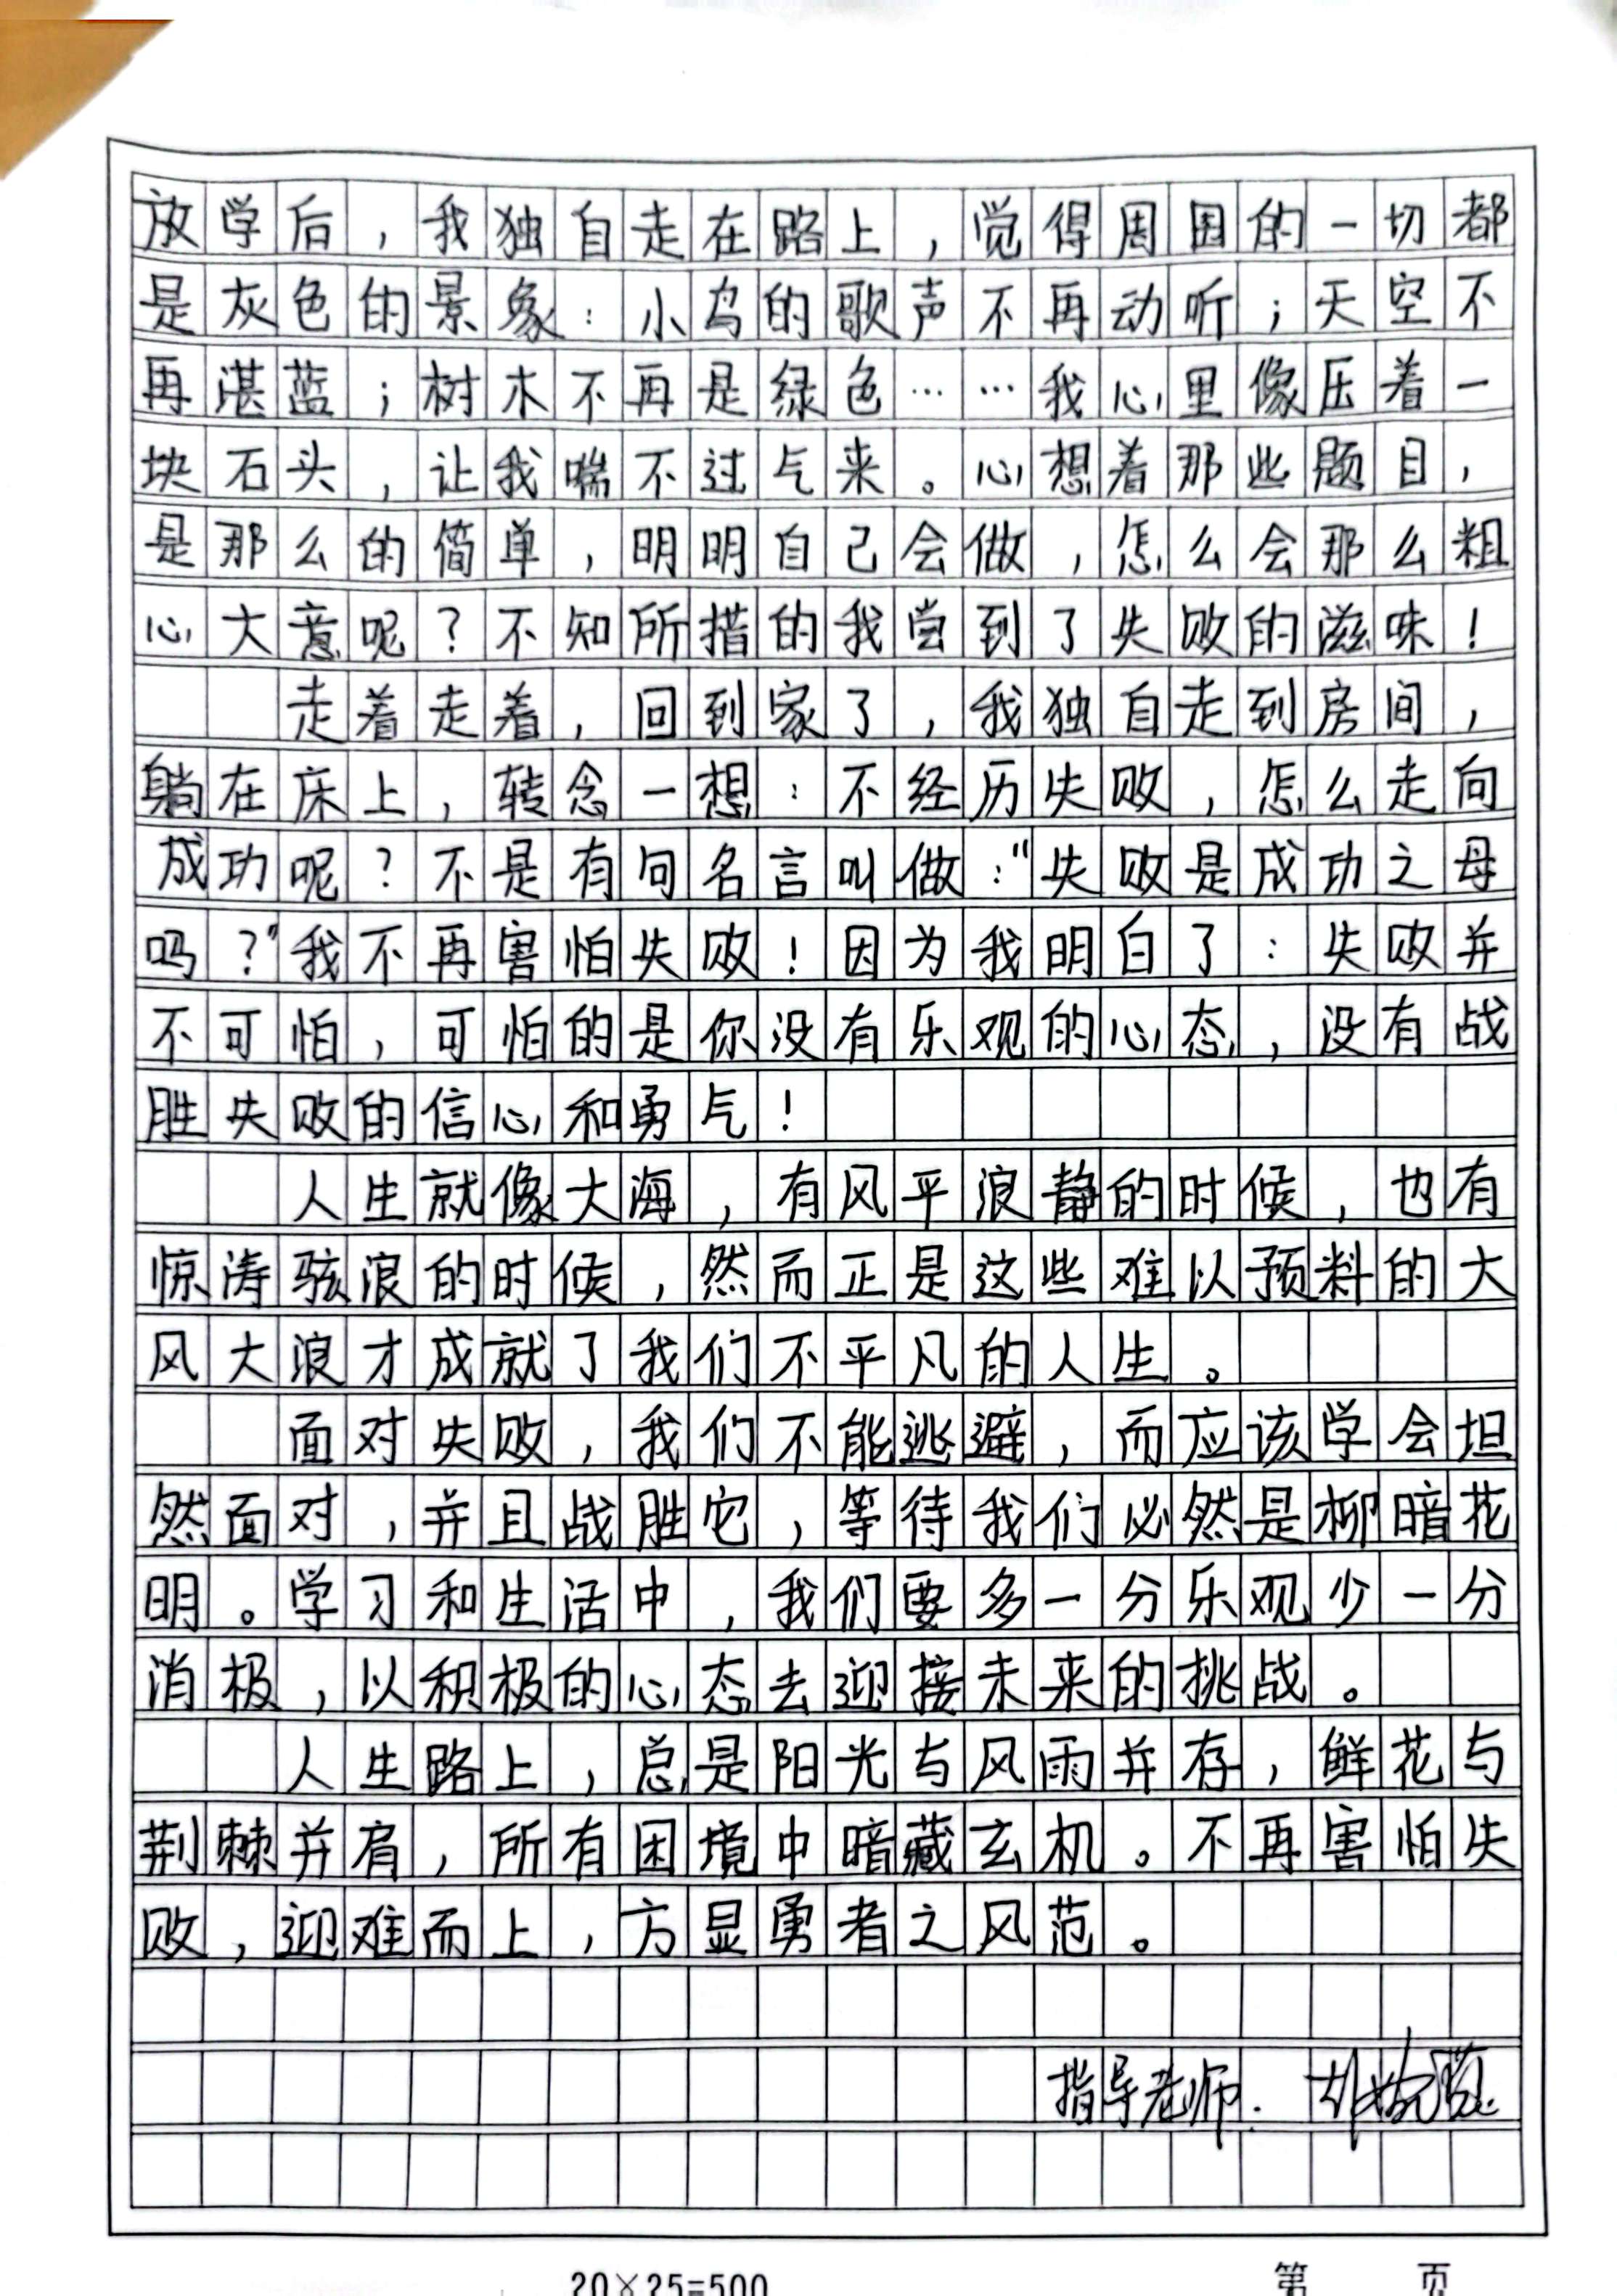 放学后，我独自走在路上，觉得周围的一切都
是灰色的景象：小鸟的歌声不再动听；天空不
再湛蓝；树木不再是绿色……我心里像压着一
块石头，让我喘不过气来。心想着那些题目，
是那么的简单，明明自己会做，怎么会那么粗
心大意呢？不知所措的我尝到了失败的滋味！
走着走着，回到家了，我独自走到房间，
躺在床上，转念一想：不经历失败，怎么走向
成功呢？不是有句名言叫做：“失败是成功之母
吗？”我不再害怕失败！因为我明白了：失败并
不可怕，可怕的是你没有乐观的心态，没有战
胜失败的信心和勇气！
人生就像大海，有风平浪静的时候，也有
惊涛骇浪的时候，然而正是这些难以预料的大
风大浪才成就了我们不平凡的人生。
面对失败，我们不能逃避，而应该学会坦
然面对，并且战胜它，等待我们必然是柳暗花
明。学习和生活中，我们要多一分乐观少一分
消极，以积极的心态去迎接未来的挑战。
人生路上，总是阳光与风雨并存，鲜花与
荆棘并肩，所有困境中暗藏玄机。不再害怕失
败，迎难而上，方显勇者之风范。
指导老师：
20×25=500 第 页